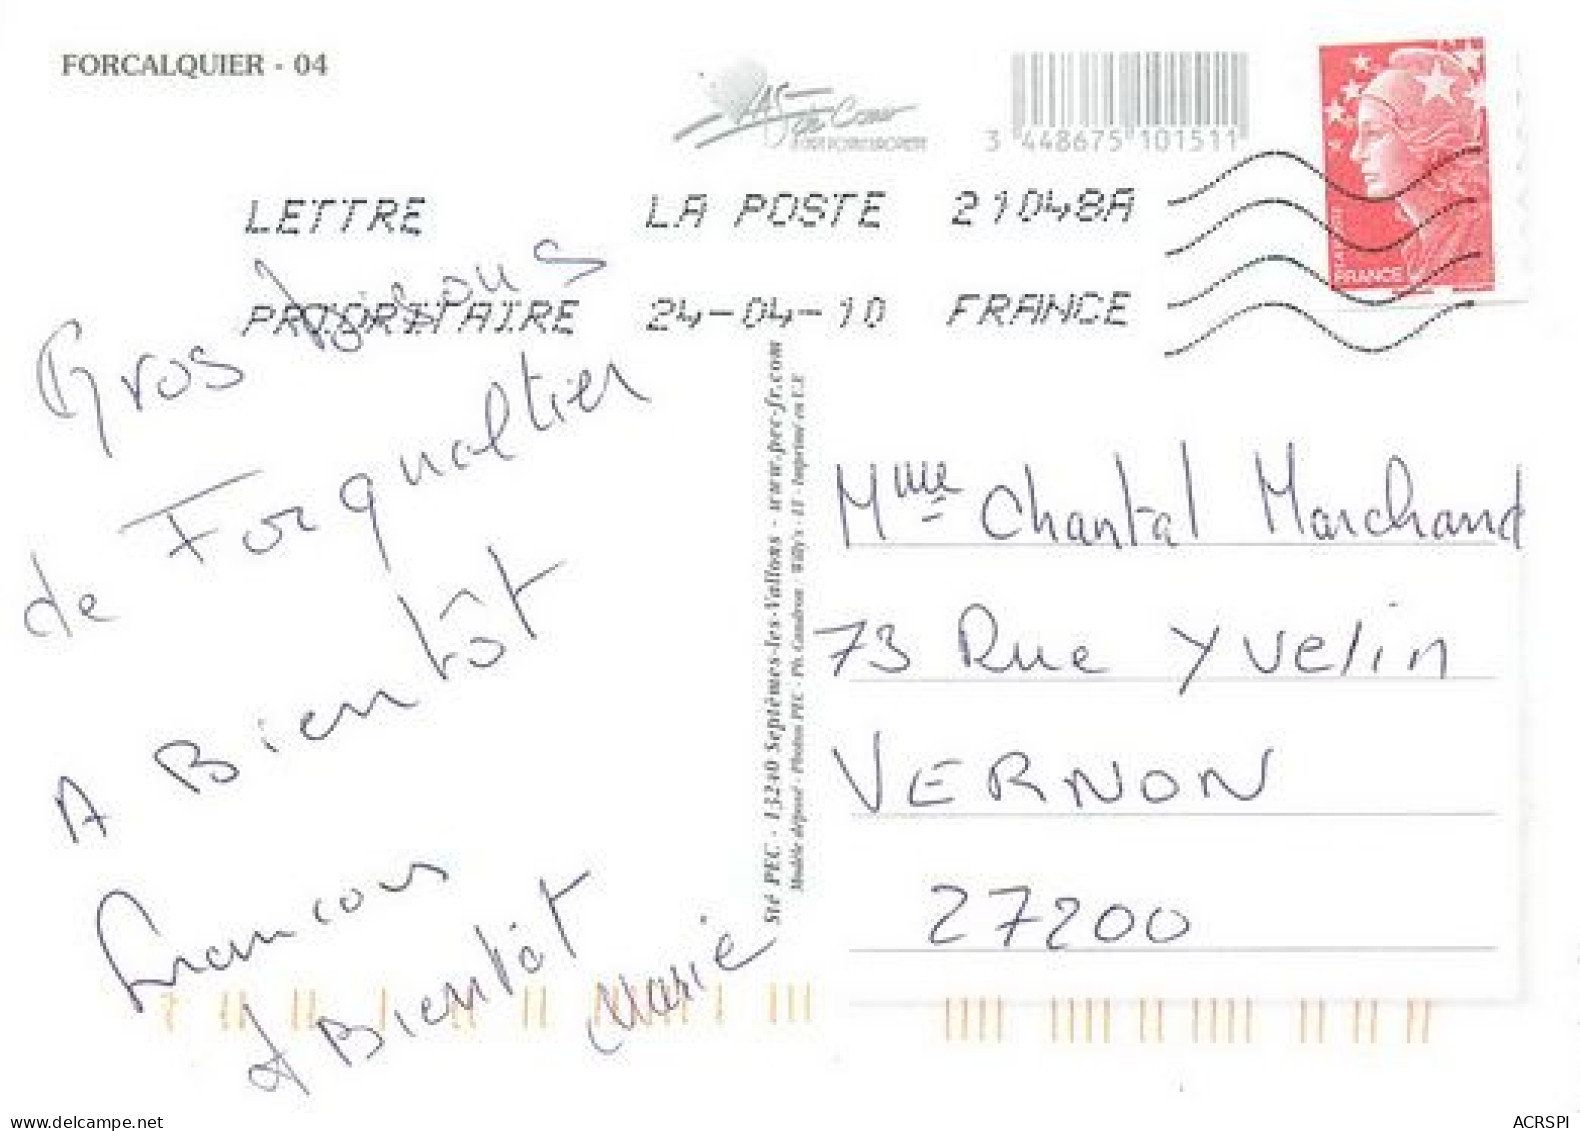 FORCALQUIER - 04
3 448675 101511
LETTRE LA POSTE 21048A
PRIORITAIRE 24-04-10 FRANCE
FRANCE
Gros bisous
de Forqualtier
A Bientôt
Francous
A Bientôt
Marie
Sté PEC - 13240 Septèmes-les-Vallons - www.pec-fr.com
Modèle déposé - Photos PEC - Ph. Gaudron - Willy's - LT - Imprimé en U.E
Mme Chantal Marchand
73 Rue Yvelin
VERNON
27200
https://www.delcampe.net
ACRSPI